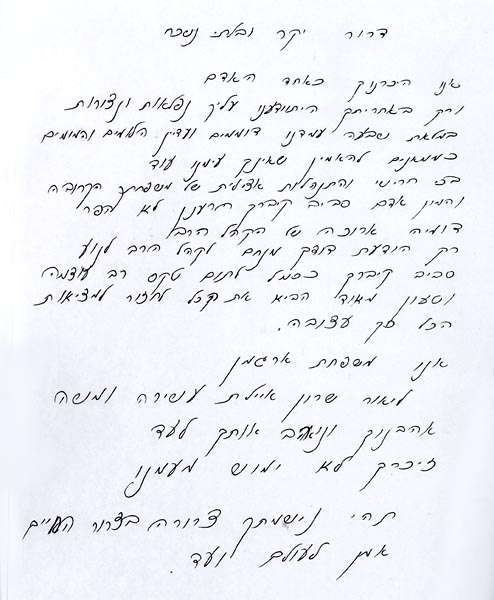 דרור יקר ובלתי נשכח
אנו היכרנוך כאחד האדם
ורק באחריתך היתוודענו עליך נפלאות ונצורות
במלאת שבעה עמדנו דוממים ועדין הלומים והמומים
כממאנים להאמין שאינך עימנו עוד
בכי חרישי והתנהלות אצילית של משפחתך הקרובה
והמון אדם סביב קיברך הרענן לא הפר
דומיה ארוכה של הקהל הרב
רק הודעת דודך מנחם לקהל הרב לנוע
סביב קיברך כסמל לתום טקס רב עוצמה
וטעון מאוד הביא את הקהל לחזור למציאות
הכל כך עצובה.
אנו משפחת ארגמן
ליאור שרון איילת עשירה ומשה
אהבנוך ונאהב אותך לעד
זיכרך לא ימוש מעמנו
תהי נישמתך צרורה בצרור החיים
אמן לעולם ועד.